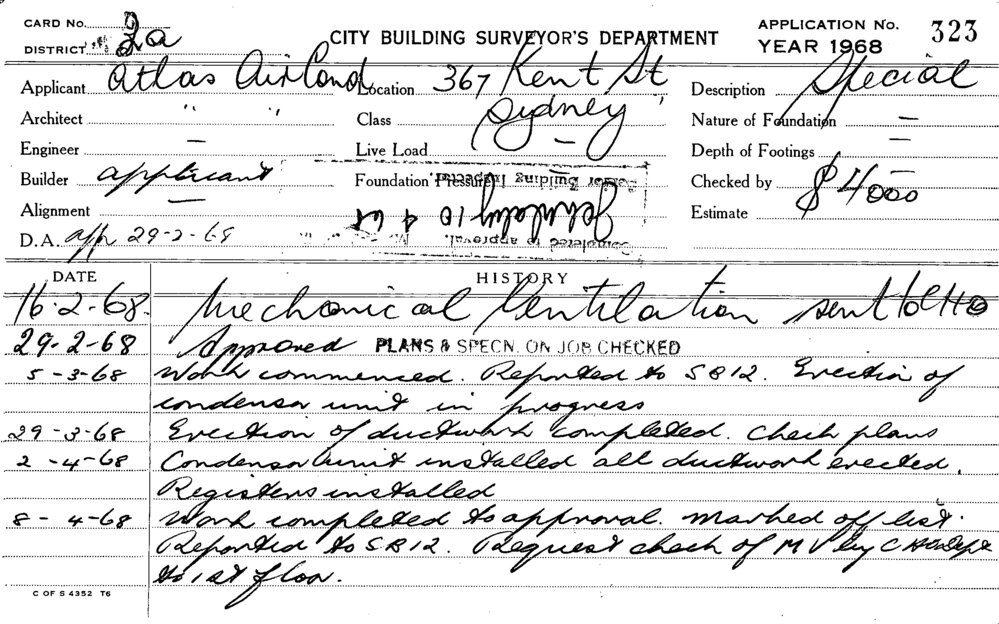 CARD No. 2
DISTRICT 2a
CITY BUILDING SURVEYOR'S DEPARTMENT
APPLICATION No. 323
YEAR 1968
Applicant Atlas Aircond Location 367 Kent St Description Special
Architect " " Class Sydney Nature of Foundation —
Engineer — Live Load — Depth of Footings —
Builder applicant Foundation Pressure Checked by
Senior Building Inspector.
Alignment — 10 4 68 Estimate $4000
D.A. app 29-2-68
Completed to approval.
DATE HISTORY
16-2-68. Mechanical Ventilation sent to CHO
29-2-68 Approved PLANS & SPECN. ON JOB CHECKED
5-3-68 Work commenced. Reported to SB12. Erection of
condensor unit in progress
29-3-68 Erection of ductwork completed. Check plans
2-4-68 Condensor unit installed all ductwork erected.
Registers installed
8-4-68 Work completed to approval. Marked off list.
Reported to SB12. Request check of MV by CHO Dept
to 1st floor.
C OF S 4352 T6